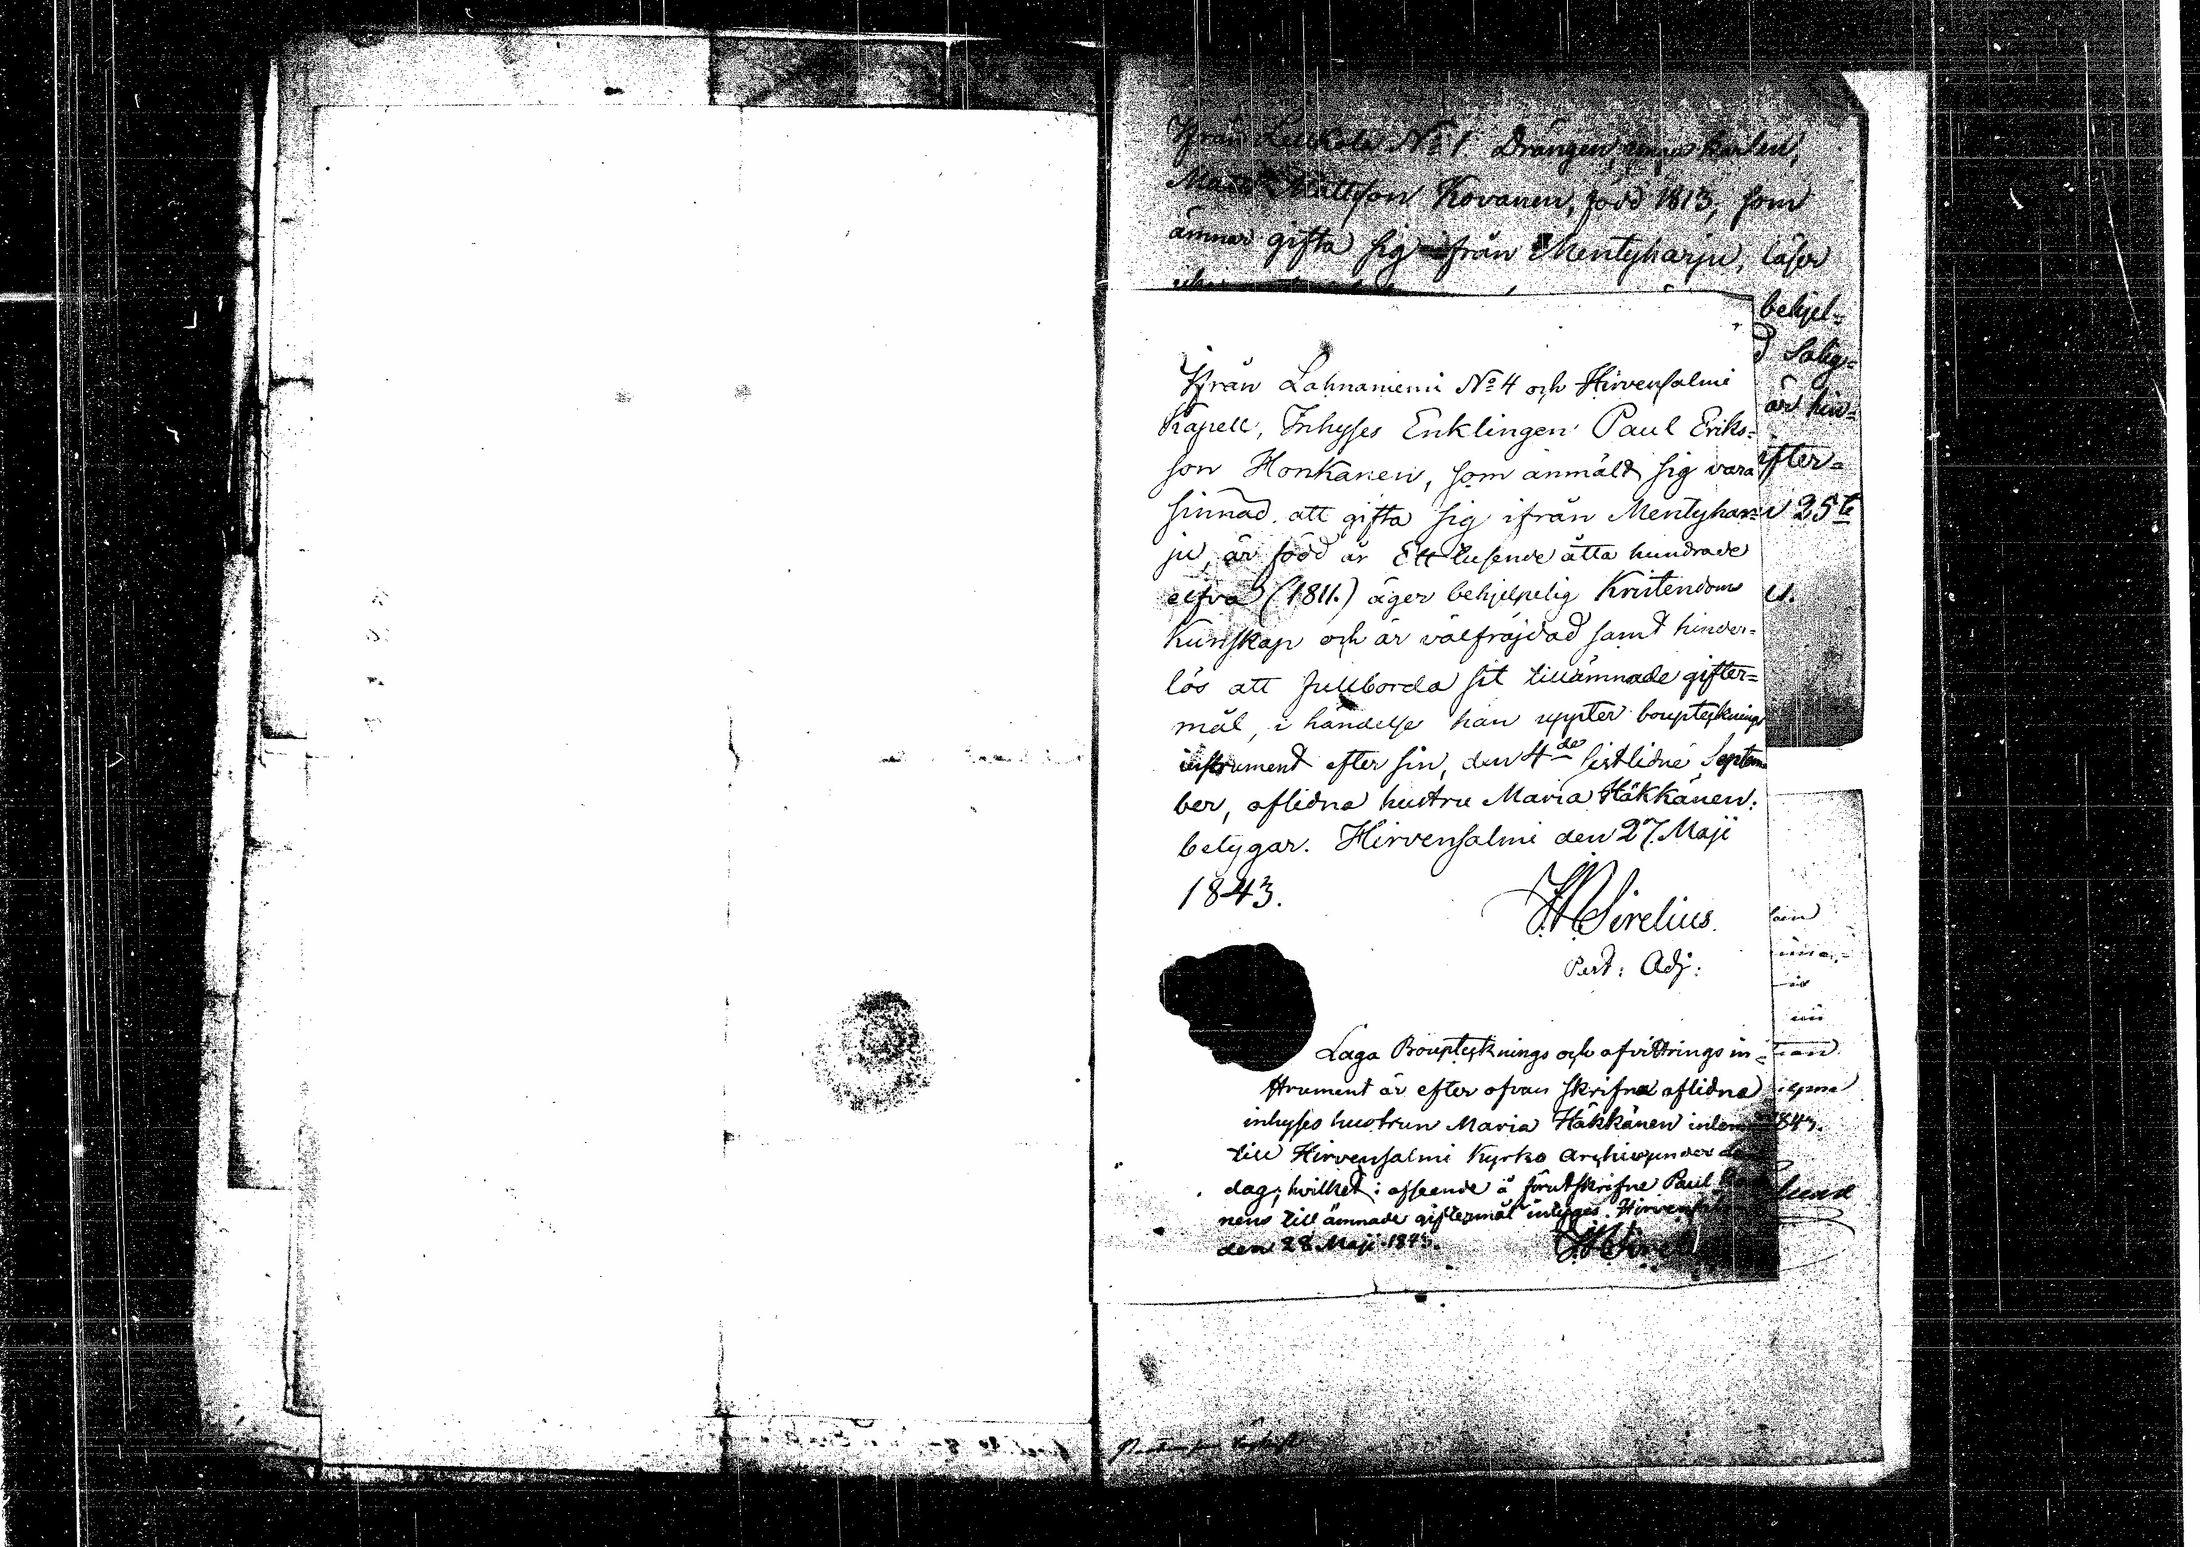 Ifrån Leskelä No 1. Drängen, unga karlen,
Mats Mattsson Kovanen, född 1813, som
ämnar gifta sig ifrån Mentyharju, läser
behjel=
Salig=
är hin=
ifter=
25te
Ifrån Lahnaniemi No 4 och Hirvensalmi
Kapell, Inhyses Enklingen Paul Eriks=
son Honkanen, som anmält sig vara
sinnad att gifta sig ifrån Mentyhar=
ju, är född år Ett tusende åtta hundrade
elfva (1811.) äger behjelpelig Kristendoms
Kunskap och är välfräjdad samt hinder=
lös att fullborda sit tillämnade gifter=
mål, i händelse han uppter boupteknings
instrument efter sin, den 4de sistlidne Septem
ber, aflidna hustru Maria Häkkänen.
betygar. Hirvensalmi den 27 Maji
1843.
Sirelius.
Past: Adj:
Laga Bouptecknings och afvittrings in=
strument är efter ofvan skrifna aflidna
inhyses hustrun Maria Häkkänen inlem
till Hirvensalmi Kyrko Archiv under
dag; hvilket i afseende å förutskrifne Paul
nens till ämnade giftermål intygas. Hirvensal
den 28 Maji 1843.
Sirel
843.
lund